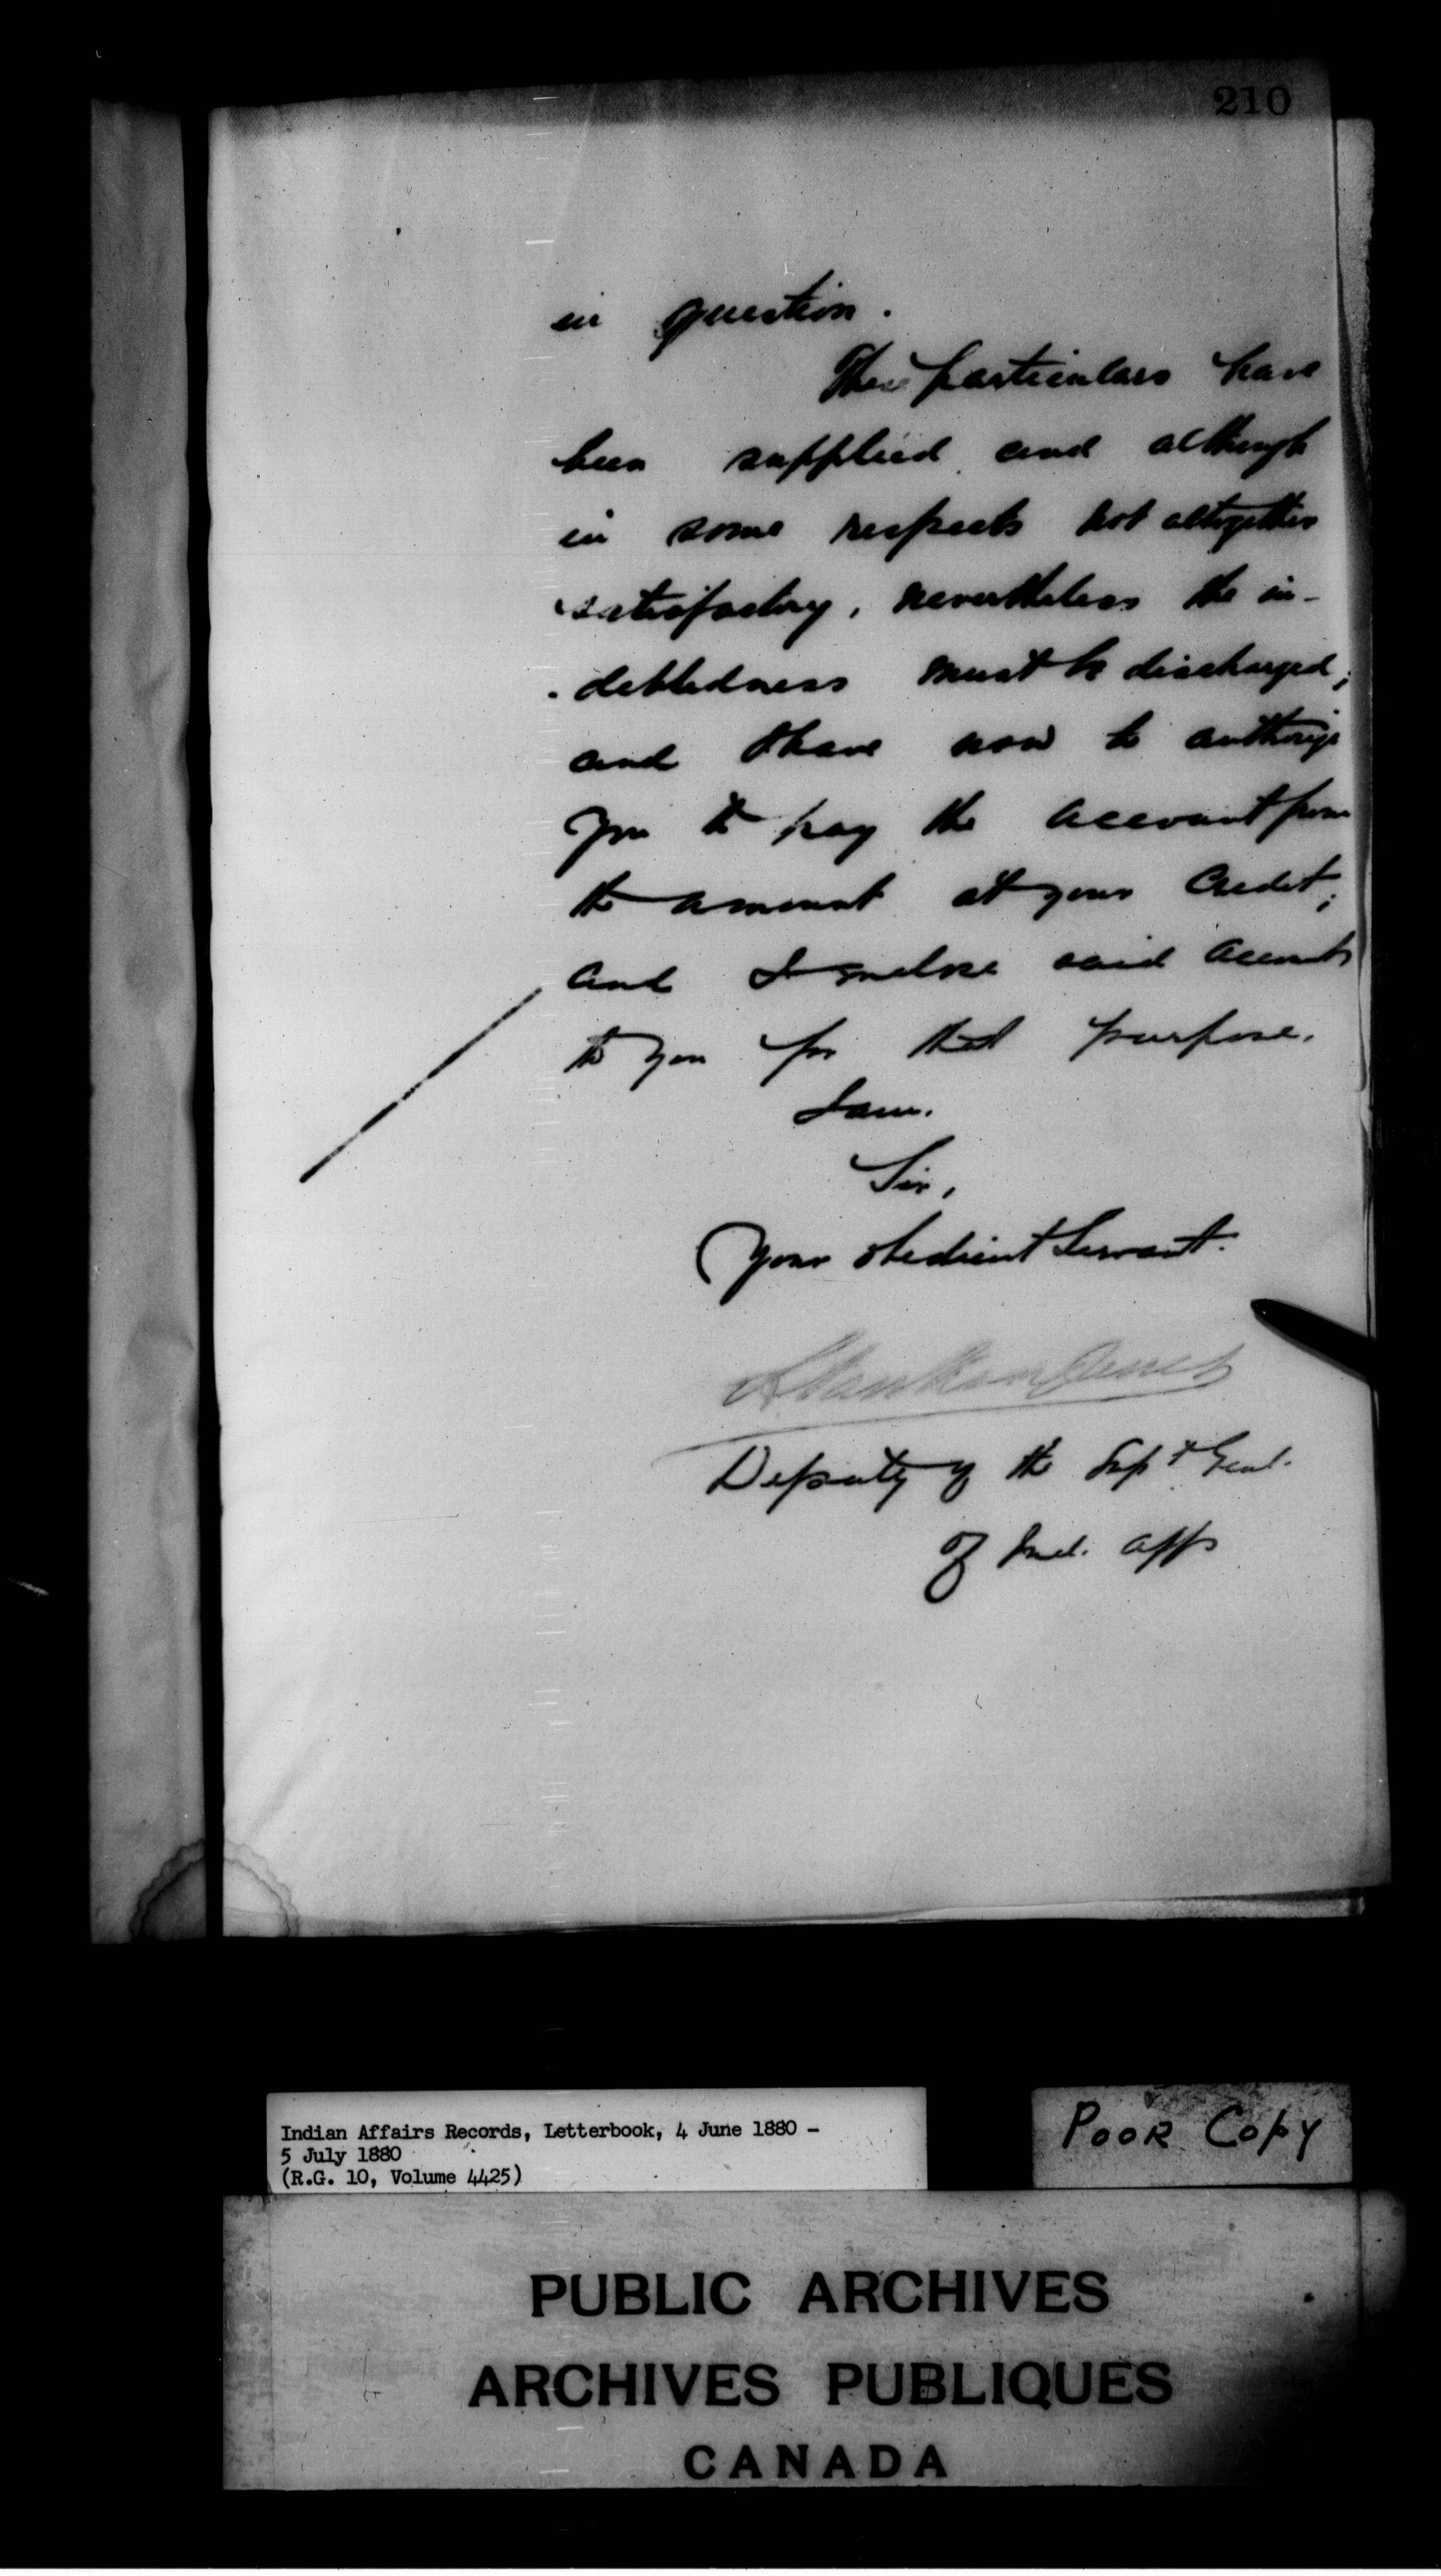 210
in question.
These particulars have
been supplied and although
in some respects not altogether
satisfactory, nevertheless the in-
debtedness must be discharged;
and I have now to authorize
you to pay the account from
the amount at your Credit;
and I enclose said accounts
to you for that purpose.
I am.
Sir,
Your obedient Servant.
L Vankoughnet
Deputy of the Supt Genl.
of Ind. Affs
Indian Affairs Records, Letterbook, 4 June 1880 -
5 July 1880
(R.G. 10, Volume 4425)
POOR COPY
PUBLIC ARCHIVES
ARCHIVES PUBLIQUES
CANADA